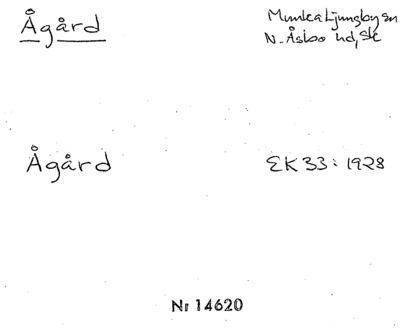 Ågård
Munka Ljungby sn
N. Åsbo hd, Sk
Ågård
EK 33: 1928
Nr 14620